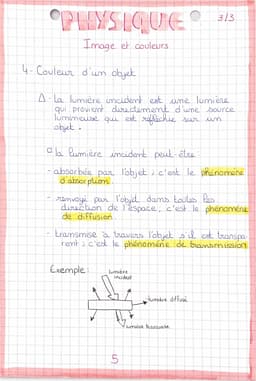 PHYSIQUE 3/3
Image et couleurs
4-Couleur d'un objet
Δ-la lumière incident est une lumière
qui provient directement d'une source
lumineuse qui est réfléchie sur un
objet.
la lumière incident peut-être
- absorbée par l'objet ; c'est le phénomène
d'absorption.
- renvoyé par l'objet dans toutes les
direction de l'espace, c'est le phénomène
de diffusion.
- transmise à travers l'objet s'il est transpa-
rent ; c'est le phénomène de transmission
Exemple:
lumière
incident
lumière diffusé
lumière transmise
5